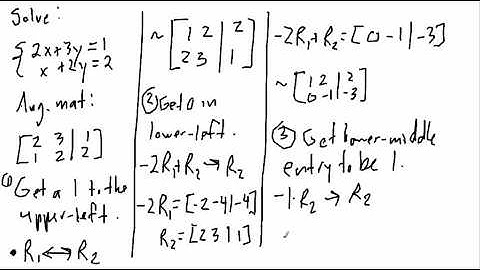 Solve:
{2x+3y=1
x+2y=2
Aug. mat:
[2 3 | 1
1 2 | 2]
① Get a 1 to the
upper-left.
• R₁ ↔ R₂
~ [1 2 | 2
2 3 | 1]
② Get 0 in
lower-left.
-2R₁+R₂ → R₂
-2R₁=[-2 -4 | -4]
R₂=[2 3 | 1]
-2R₁+R₂=[0 -1 | -3]
~ [1 2 | 2
0 -1 | -3]
③ Get lower-middle
entry to be 1.
-1·R₂ → R₂